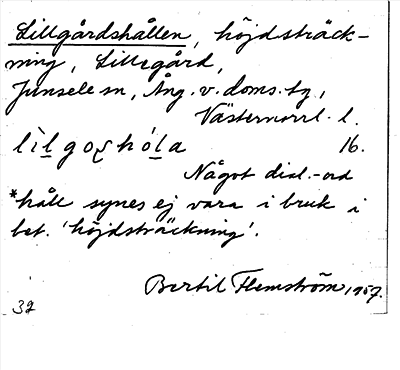 Lillgårdshållen, höjdsträck-
ning, Lillegård,
Junsele sn, Ång. v. doms. tg,
Västernorrl. l.
lìl̠goʂhól̠a 16.
Något dial.-ord
*håll synes ej vara i bruk i
bet. 'höjdsträckning'.
Bertil Flemström 1957.
32